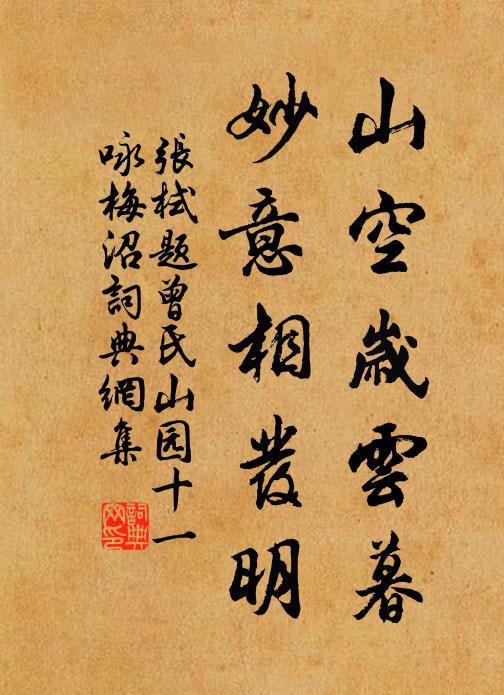 山空歲雲暮
妙意相發明
張栻題曾氏山园十一
咏梅沼詞典網集
詞典
网印